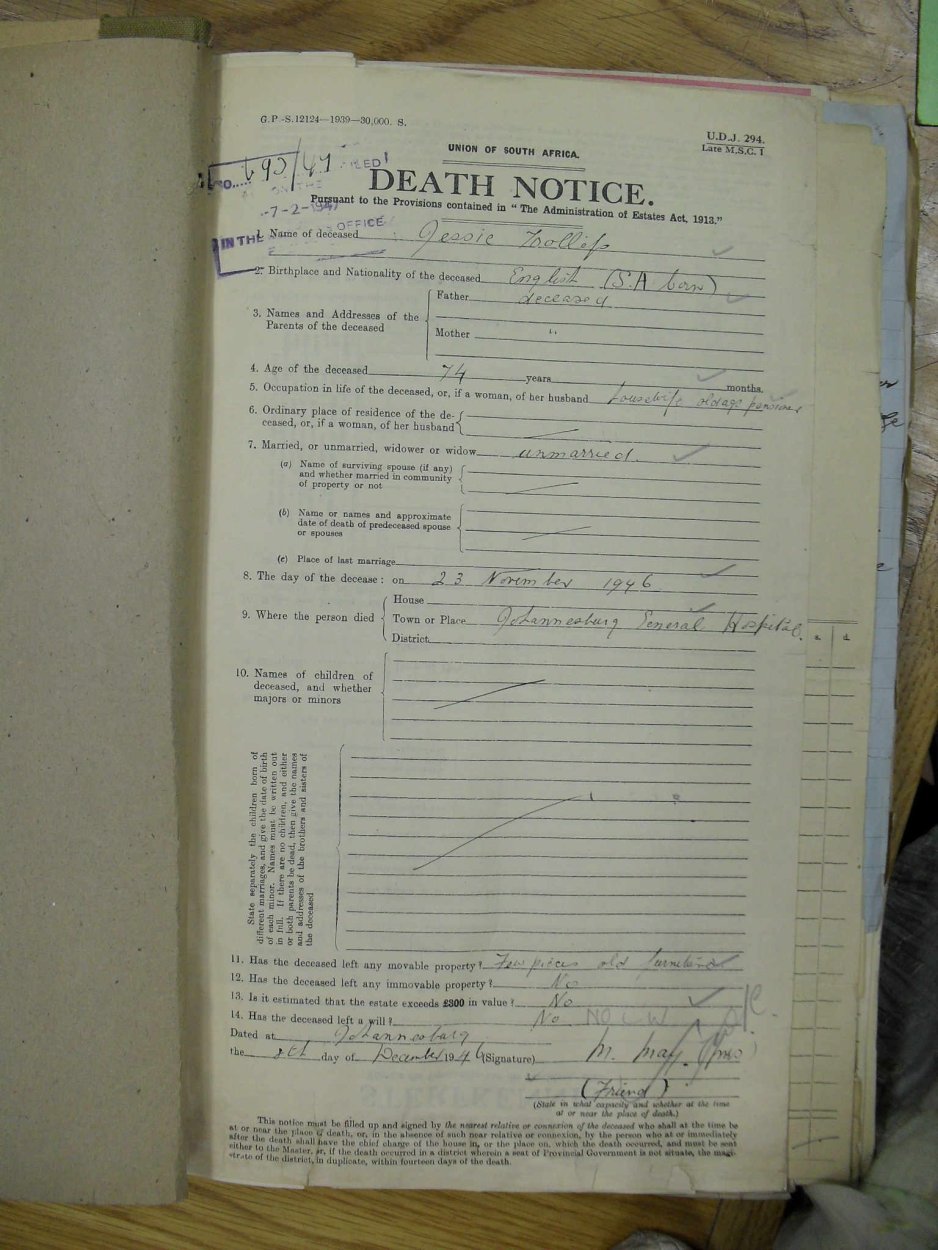 G.P.-S.12124—1939—30,000. S.
U.D.J. 294.
Late M.S.C. 1
UNION OF SOUTH AFRICA.
NO. 693/47 FILED
ON THE
-7-2-1947
IN THE OFFICE
DEATH NOTICE.
Pursuant to the Provisions contained in "The Administration of Estates Act, 1913."
1. Name of deceased Jessie Trollip
2. Birthplace and Nationality of the deceased English (S.A born)
3. Names and Addresses of the Parents of the deceased
Father deceased
Mother "
4. Age of the deceased 74 years months.
5. Occupation in life of the deceased, or, if a woman, of her husband housewife old age pensioner
6. Ordinary place of residence of the deceased, or, if a woman, of her husband
7. Married, or unmarried, widower or widow unmarried.
(a) Name of surviving spouse (if any)
and whether married in community
of property or not
(b) Name or names and approximate
date of death of predeceased spouse
or spouses
(c) Place of last marriage
8. The day of the decease: on 23 November 1946
9. Where the person died
House
Town or Place Johannesburg General Hospital.
District
10. Names of children of
deceased, and whether
majors or minors
State separately the children born of
different marriages, and give the date of birth
of each minor. Names must be written out
in full. If there are no children, and either
or both parents be dead, then give the names
and addresses of the brothers and sisters of
the deceased
11. Has the deceased left any movable property? Few pieces old furniture
12. Has the deceased left any immovable property? No
13. Is it estimated that the estate exceeds £300 in value? No
14. Has the deceased left a will? No
Dated at Johannesburg
the 8th day of December 1946 (Signature) M. May. (Mrs)
(Friend)
(State in what capacity and whether at the time
or near the place of death.)
This notice must be filled up and signed by the nearest relative or connexion of the deceased who shall at the time be
at or near the place of death, or, in the absence of such near relative or connexion, by the person who at or immediately
after the death shall have the chief charge of the house in, or the place on, which the death occurred, and must be sent
either to the Master, or, if the death occurred in a district wherein a seat of Provincial Government is not situate, the magi-
strate of the district, in duplicate, within fourteen days of the death.
s. d.